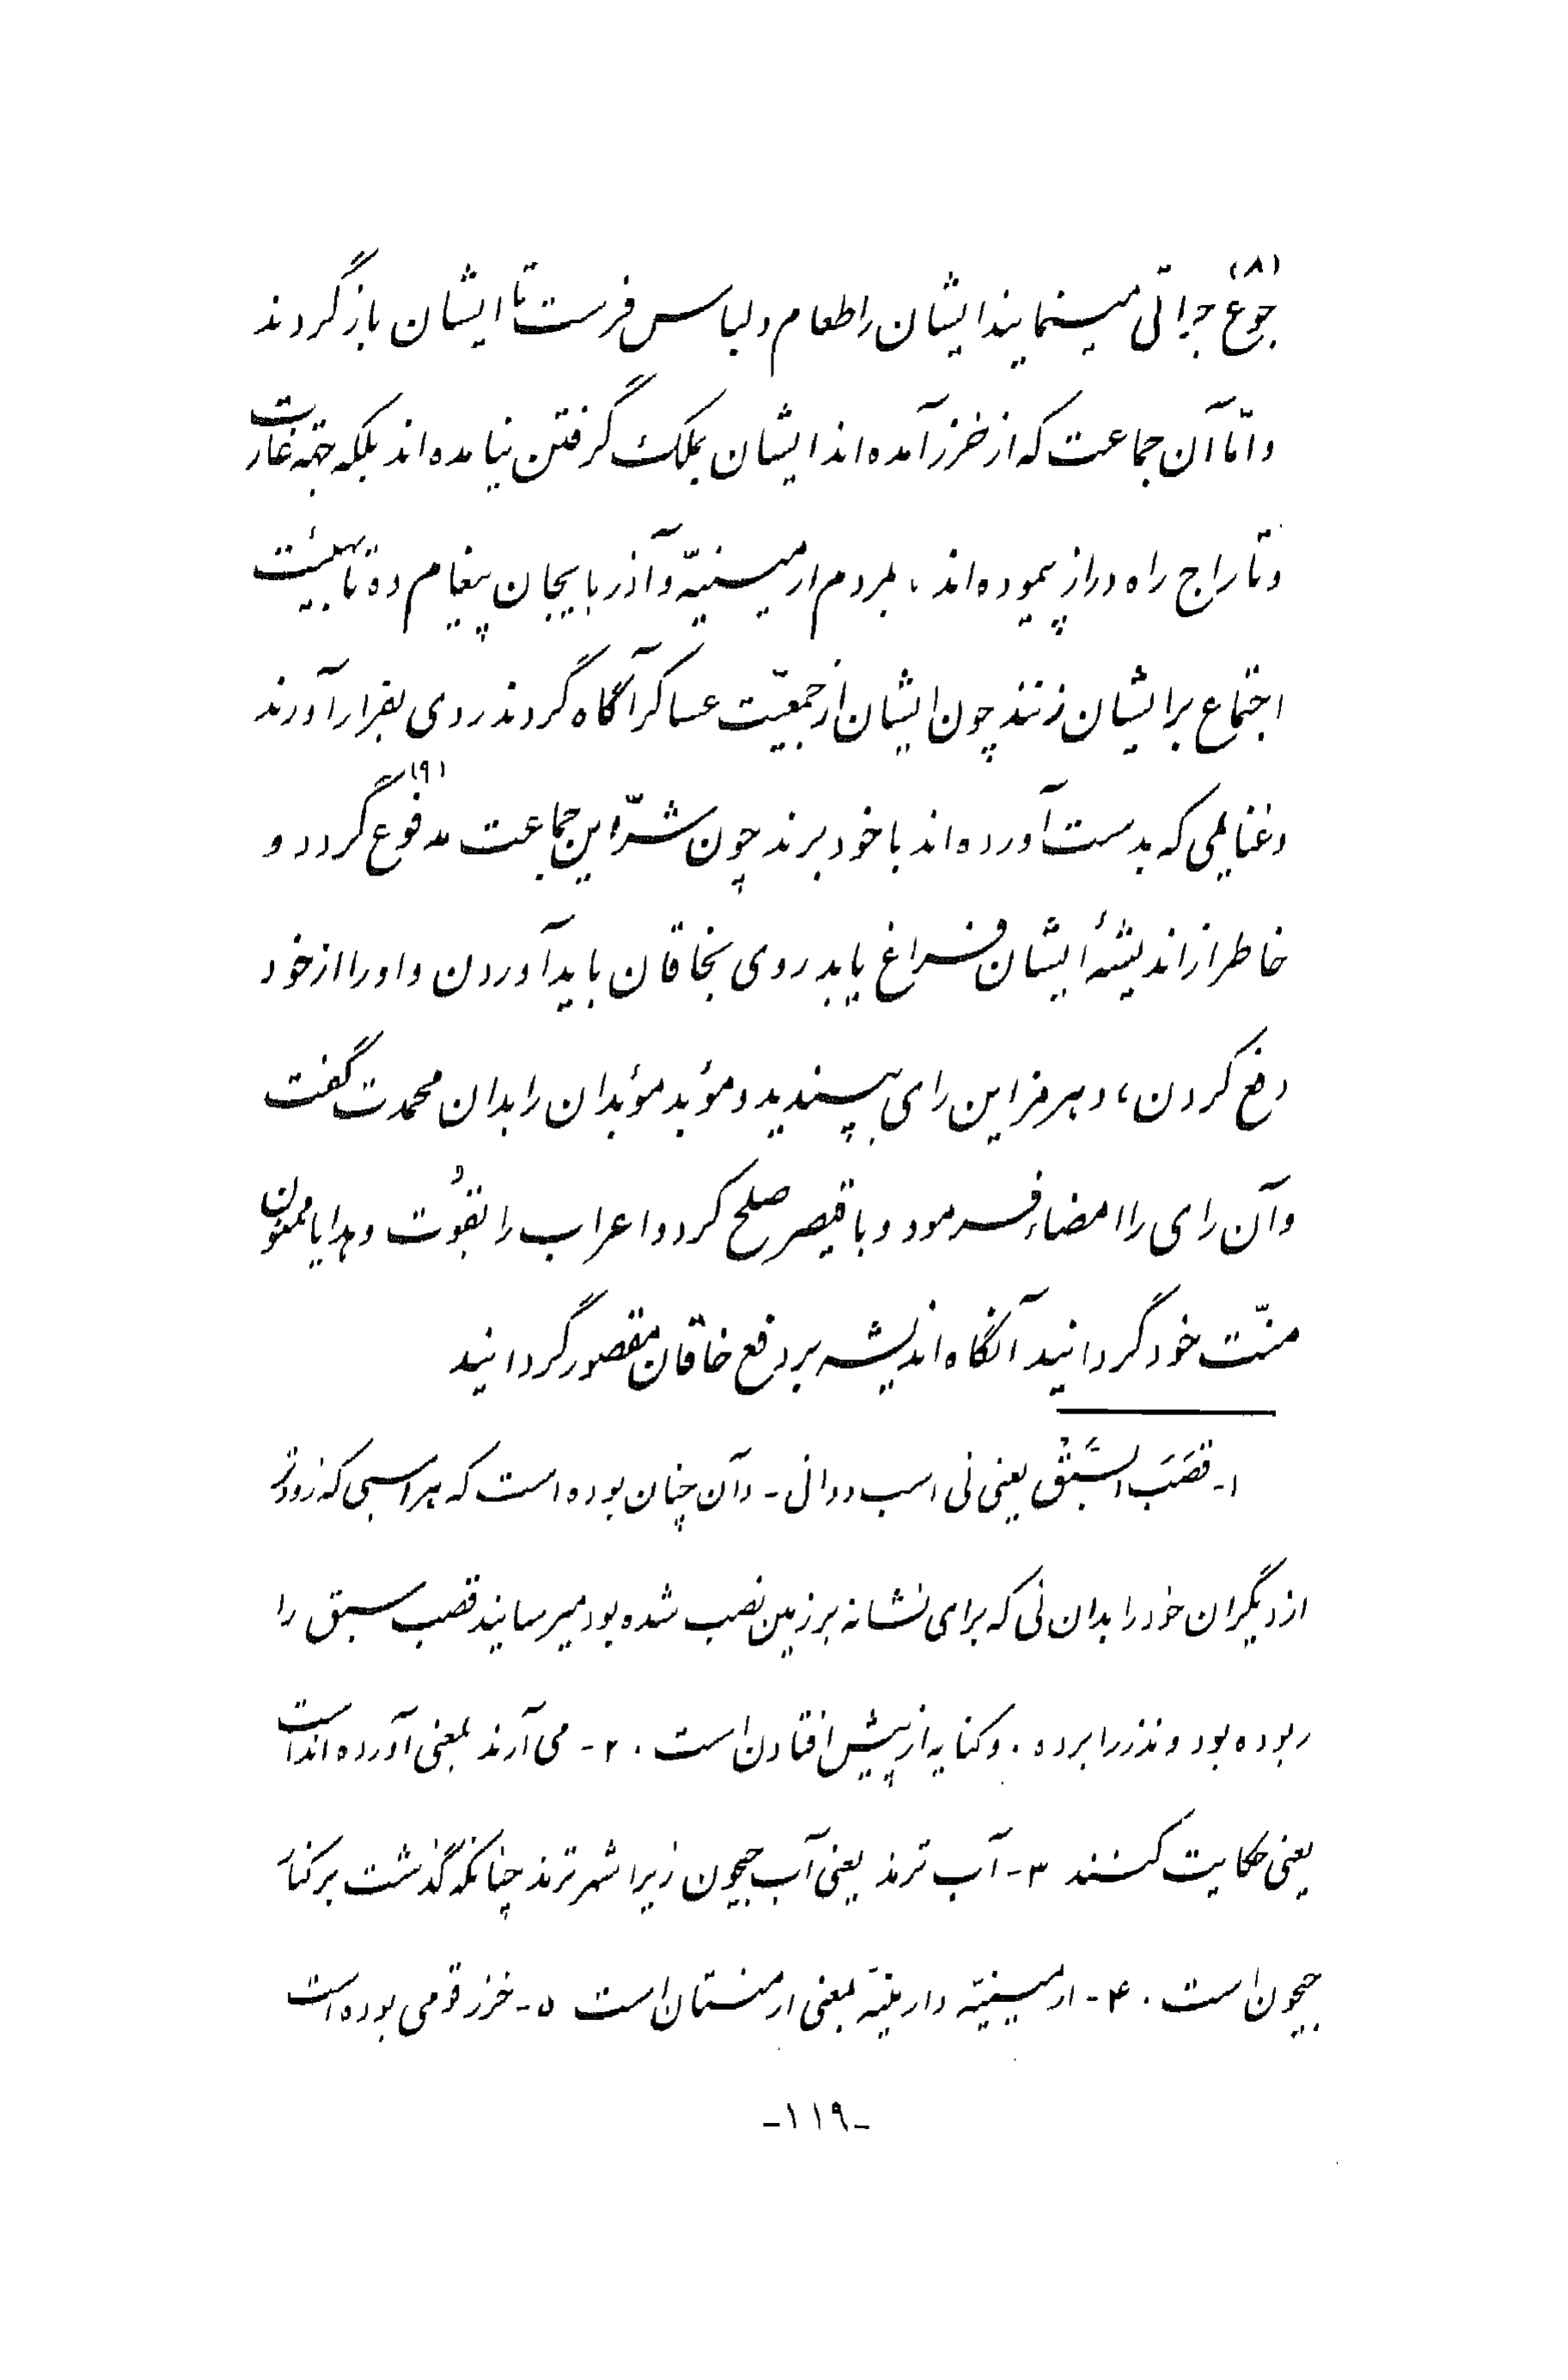 (۸)
جوع جرأتی مینمایند ایشان را طعام و لباس فرست تا ایشان بازگردند
و امّا آن جماعت که از خزر آمده‌اند ایشان بملک گرفتن نیامده‌اند بلکه جهة غارت
و تاراج راه دراز پیموده‌اند، بمردم ارمینیّه و آذربایجان پیغام ده تا بهیئت
اجتماع بر ایشان زنند چون ایشان از جمعیّت عساکر آگاه گردند روی بفرار آورند
و غنایمی که بدست آورده‌اند با خود برند چون شرّ این جماعت مدفوع (۹) گردد و
خاطر از اندیشهٔ ایشان فراغ یابد روی بخاقان باید آوردن و او را از خود
دفع کردن، و هرمز این رای بپسندید و مؤبد مؤبدان را بدان محمدت گفت
و آن رای را امضاء فرمود و با قیصر صلح کرد و اعراب را بقُوت و هدایا ممنون
منّت خود گردانید آنگاه اندیشه بر دفع خاقان مقصور گردانید
۱- قَصَبُ السَّبْق یعنی نی اسب دوانی - و آن چنان بوده است که هر اسبی که زودتر
از دیگران خود را بدان نی که برای نشانه بر زمین نصب شده بود میرسانید قصب سبق را
ربوده بود و نذر را برده. و کنایه از پیش افتادن است. ۲- می‌آرند بمعنی آورده‌اند است
یعنی حکایت کنند ۳- آب ترمذ یعنی آب جیحون زیرا شهر ترمذ چنانکه گذشت بر کنار
جیحون است. ۴- ارمینیّه و ارمنیّه بمعنی ارمنستان است ۵- خزر قومی بوده است
-۱۱۹-